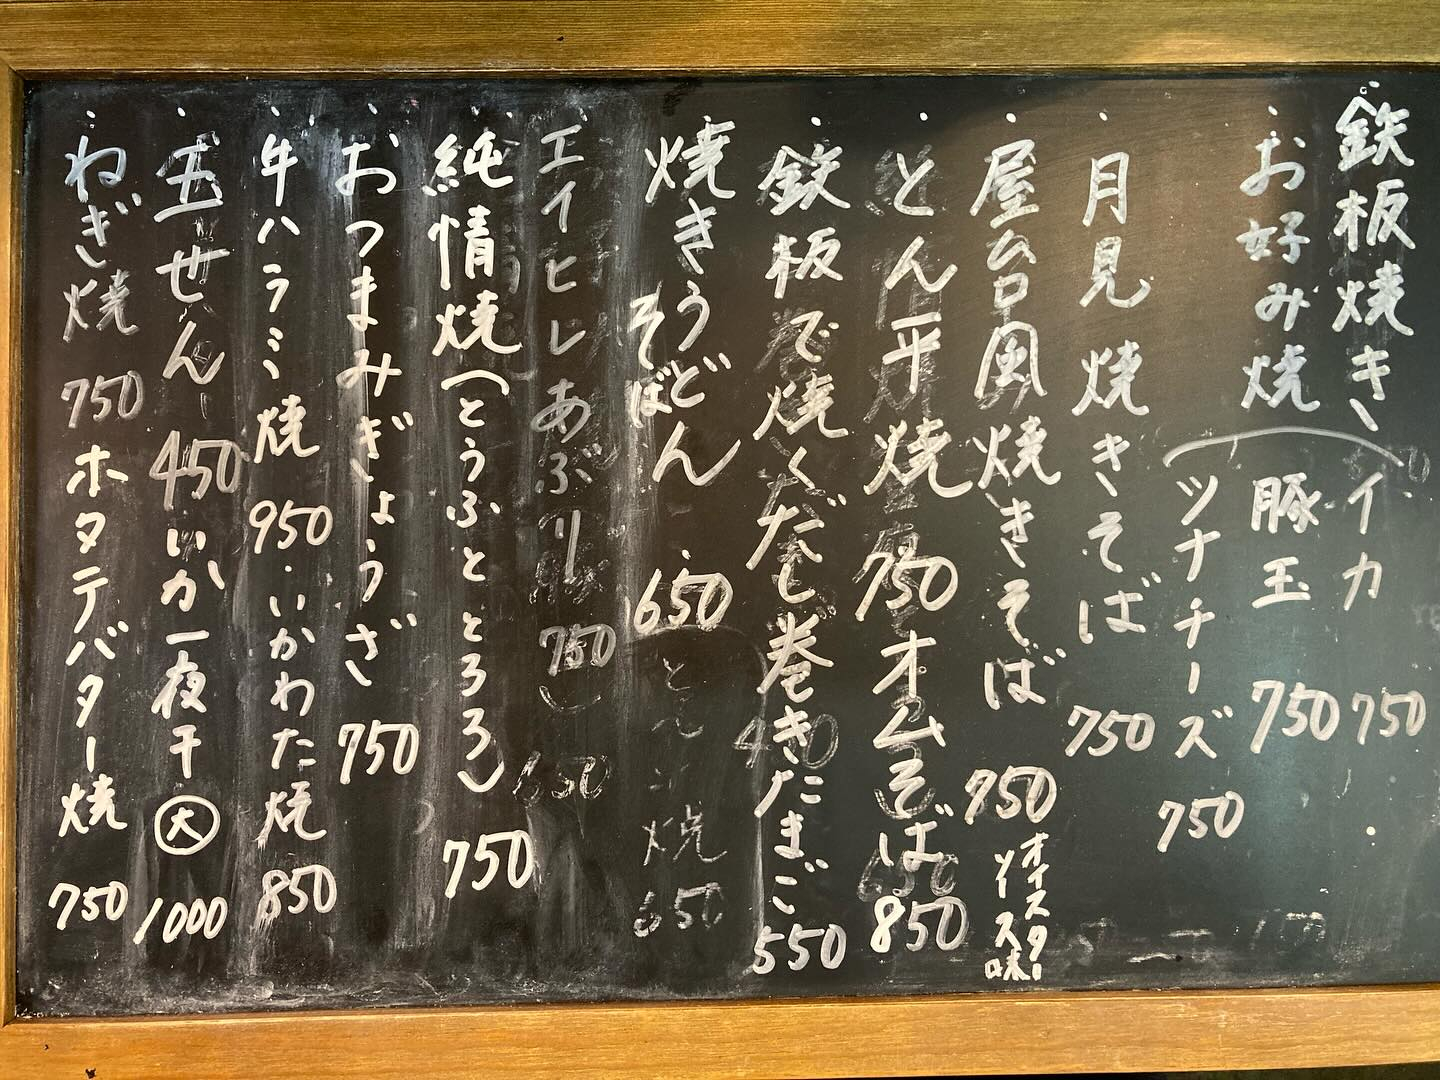 鉄板焼き
お好み焼
イカ 750
豚玉 750
ツナチーズ 750
月見焼きそば 750
屋ムロ風焼きそば 950
オイスターソース味
とん平焼 750
オムそば 850
鉄板で焼くだし巻きたまご 550
焼きうどん
そば
650
エイヒレあぶり
純情焼(とうふととろろ) 750
おつまみぎょうざ 750
牛ハラミ焼 950
いかわた焼 850
五せん 450
いか一夜干 大 1000
ねぎ焼 750
ホタテバター焼 750